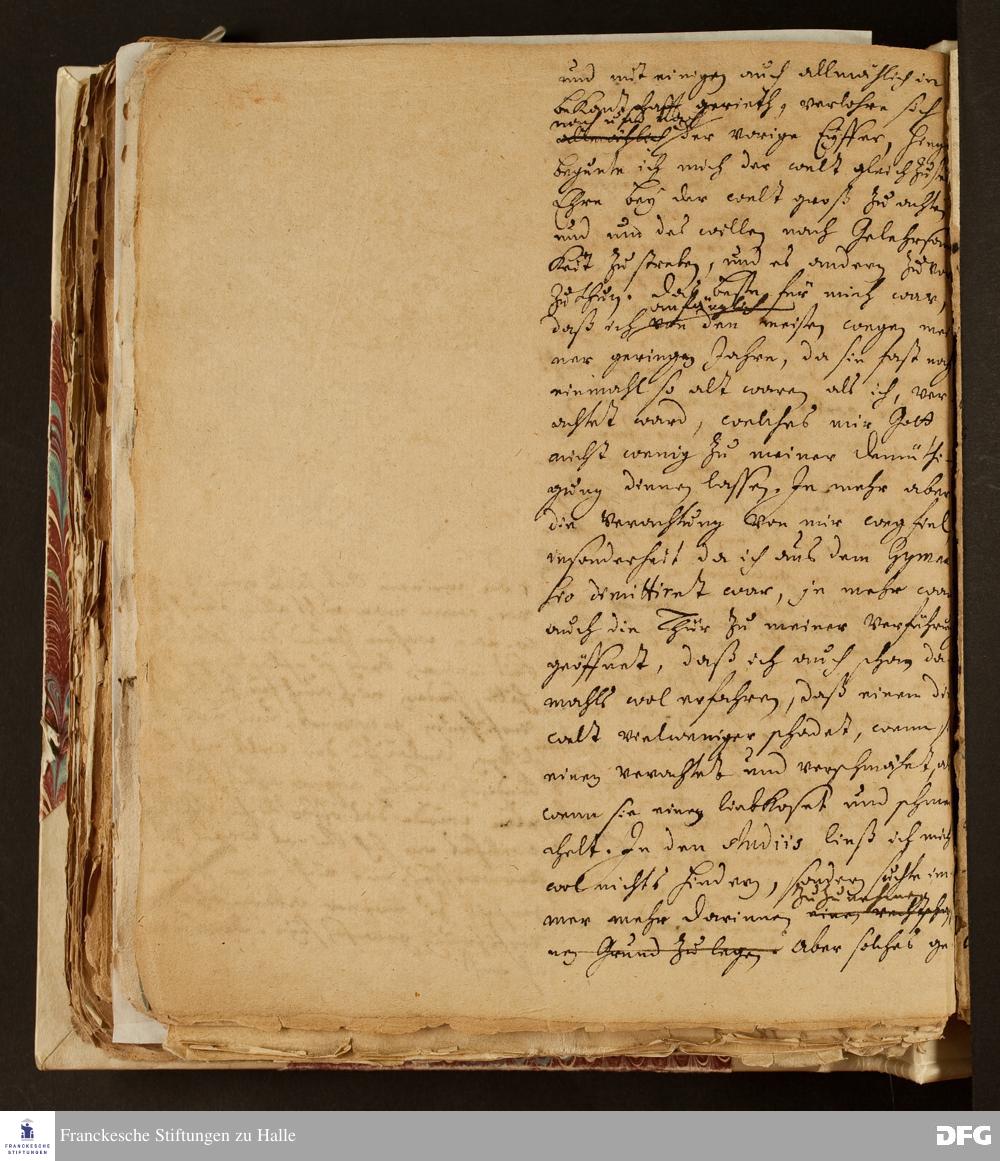 und mit einigen auch allmählich in
bekantschafft gerieth, verlohre sich
nach und nach
allmählich der vorige Eyffer, hing
begunte ich mich der welt gleich zu ste
Ehre bey der welt groß zu achten
und um des willen nach Gelehrsam
keit zu streben, und es andern zuvor
zu thun. Das beste für mich war,
anfänglich
daß ich von den meisten wegen mei
ner geringen Jahre, da sie fast noch
einmahl so alt waren als ich, ver
achtet ward, welches mir Gott
nicht wenig zu meiner Demüthi-
gung dienen lassen. Je mehr aber
die Verachtung von mir wegfiel
insonderheit da ich aus dem Gymna
sio dimittiret war, je mehr war
auch die Thür zu meiner Verführung
geöffnet, daß ich auch schon da
mahls wol erfahren, daß einem die
welt vielweniger schadet, wenn sie
einen verachtet und verschmähet, als
wenn sie einen liebkoset und schmei
chelt. In den Studiis ließ ich mich
wol nichts hindern, sondern suchte im
zuzunehmen
mer mehr darinnen einen rechtschaffe
nen Grund zu legen. Aber solches ge
FRANCKESCHE
STIFTUNGEN
Franckesche Stiftungen zu Halle
DFG